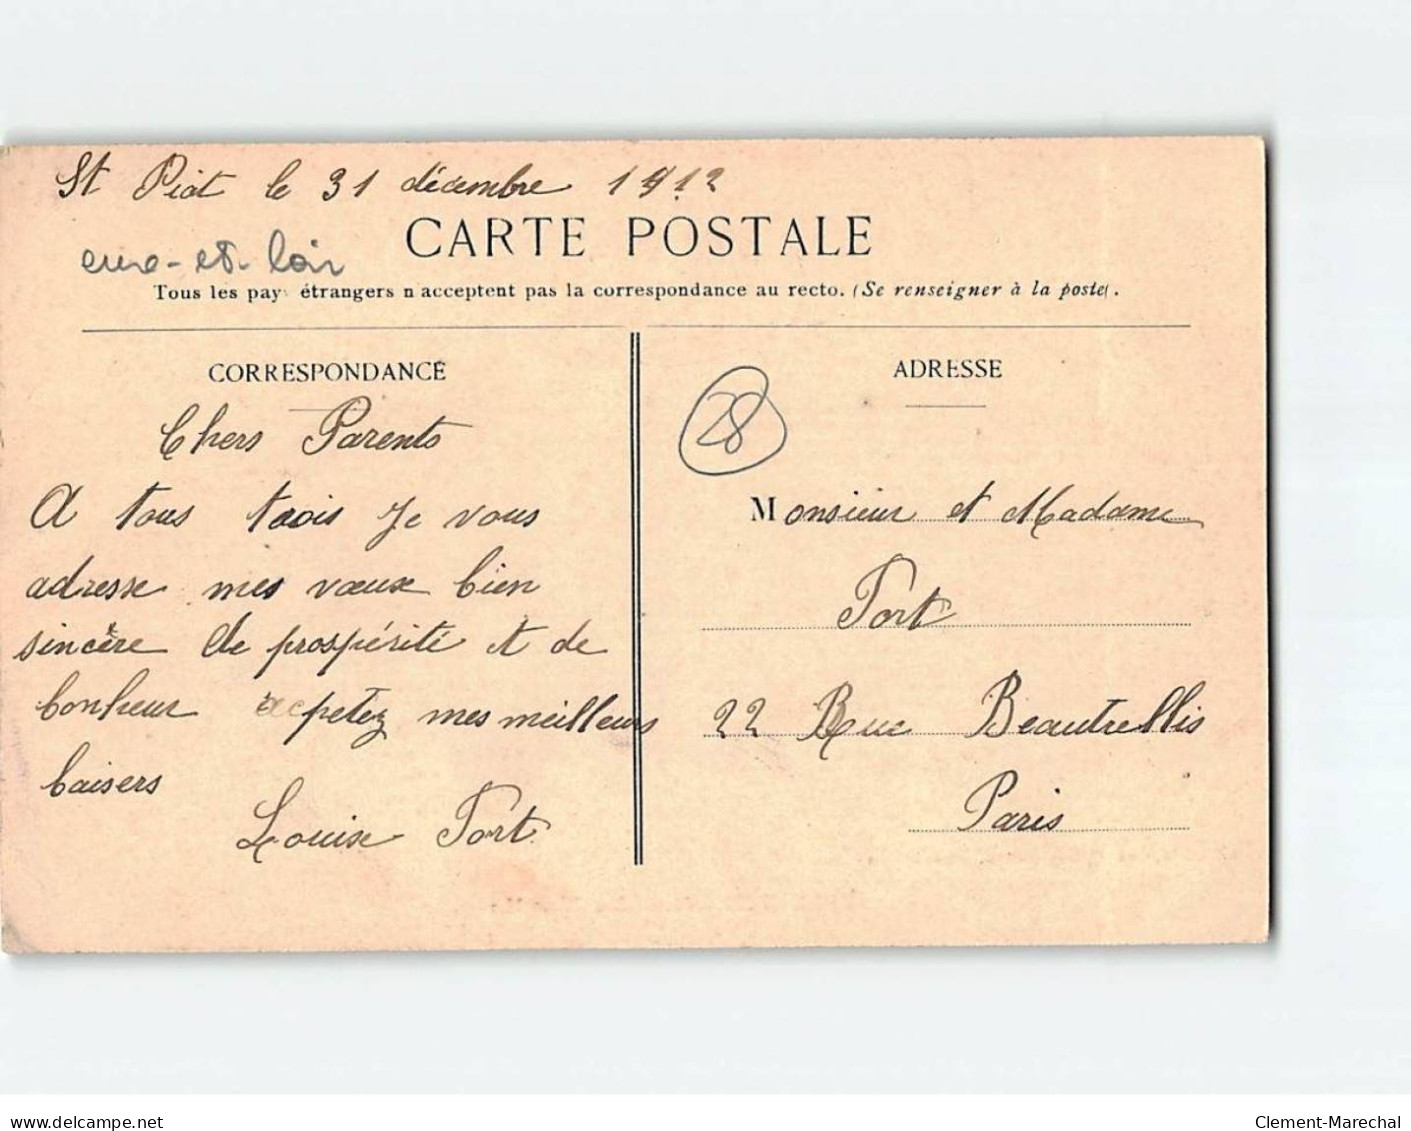 St Piat le 31 décembre 1912
CARTE POSTALE
eure-et-loir
Tous les pays étrangers n'acceptent pas la correspondance au recto. (Se renseigner à la poste).
CORRESPONDANCE
Chers Parents
A tous trois Je vous
adresse mes vœux bien
sincère de prospérité et de
bonheur acpetez mes meilleurs
baisers
Louise Tort
ADRESSE
28
Monsieur et Madame
Tort
22 Rue Beautrellis
Paris
delcampe.net
Clement-Marechal